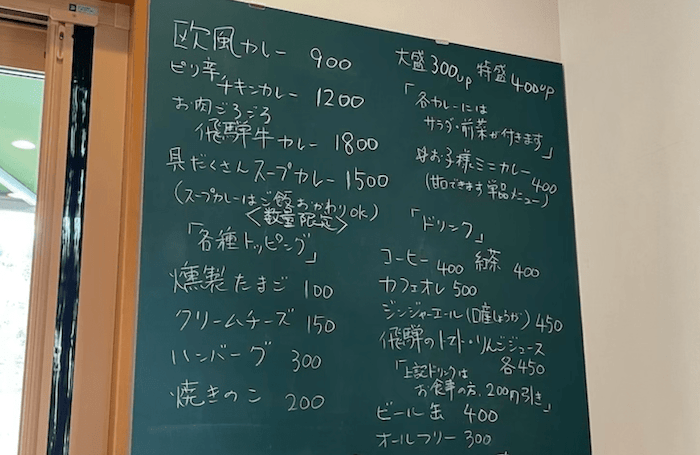 欧風カレー 900
ピリ辛チキンカレー 1200
お肉ごろごろ
飛騨牛カレー 1800
具だくさんスープカレー 1500
(スープカレーはご飯おかわりOK)
<数量限定>
「各種トッピング」
燻製たまご 100
クリームチーズ 150
ハンバーグ 300
焼きのこ 200
大盛300up 特盛400up
「各カレーには
サラダ・前菜が付きます」
お子様ミニカレー 400
(甘口できます 単品メニュー)
「ドリンク」
コーヒー 400 紅茶 400
カフェオレ 500
ジンジャーエール(国産しょうが) 450
飛騨のトマト・りんごジュース
各450
「上記ドリンクは
お食事の方、200円引き」
ビール缶 400
オールフリー 300